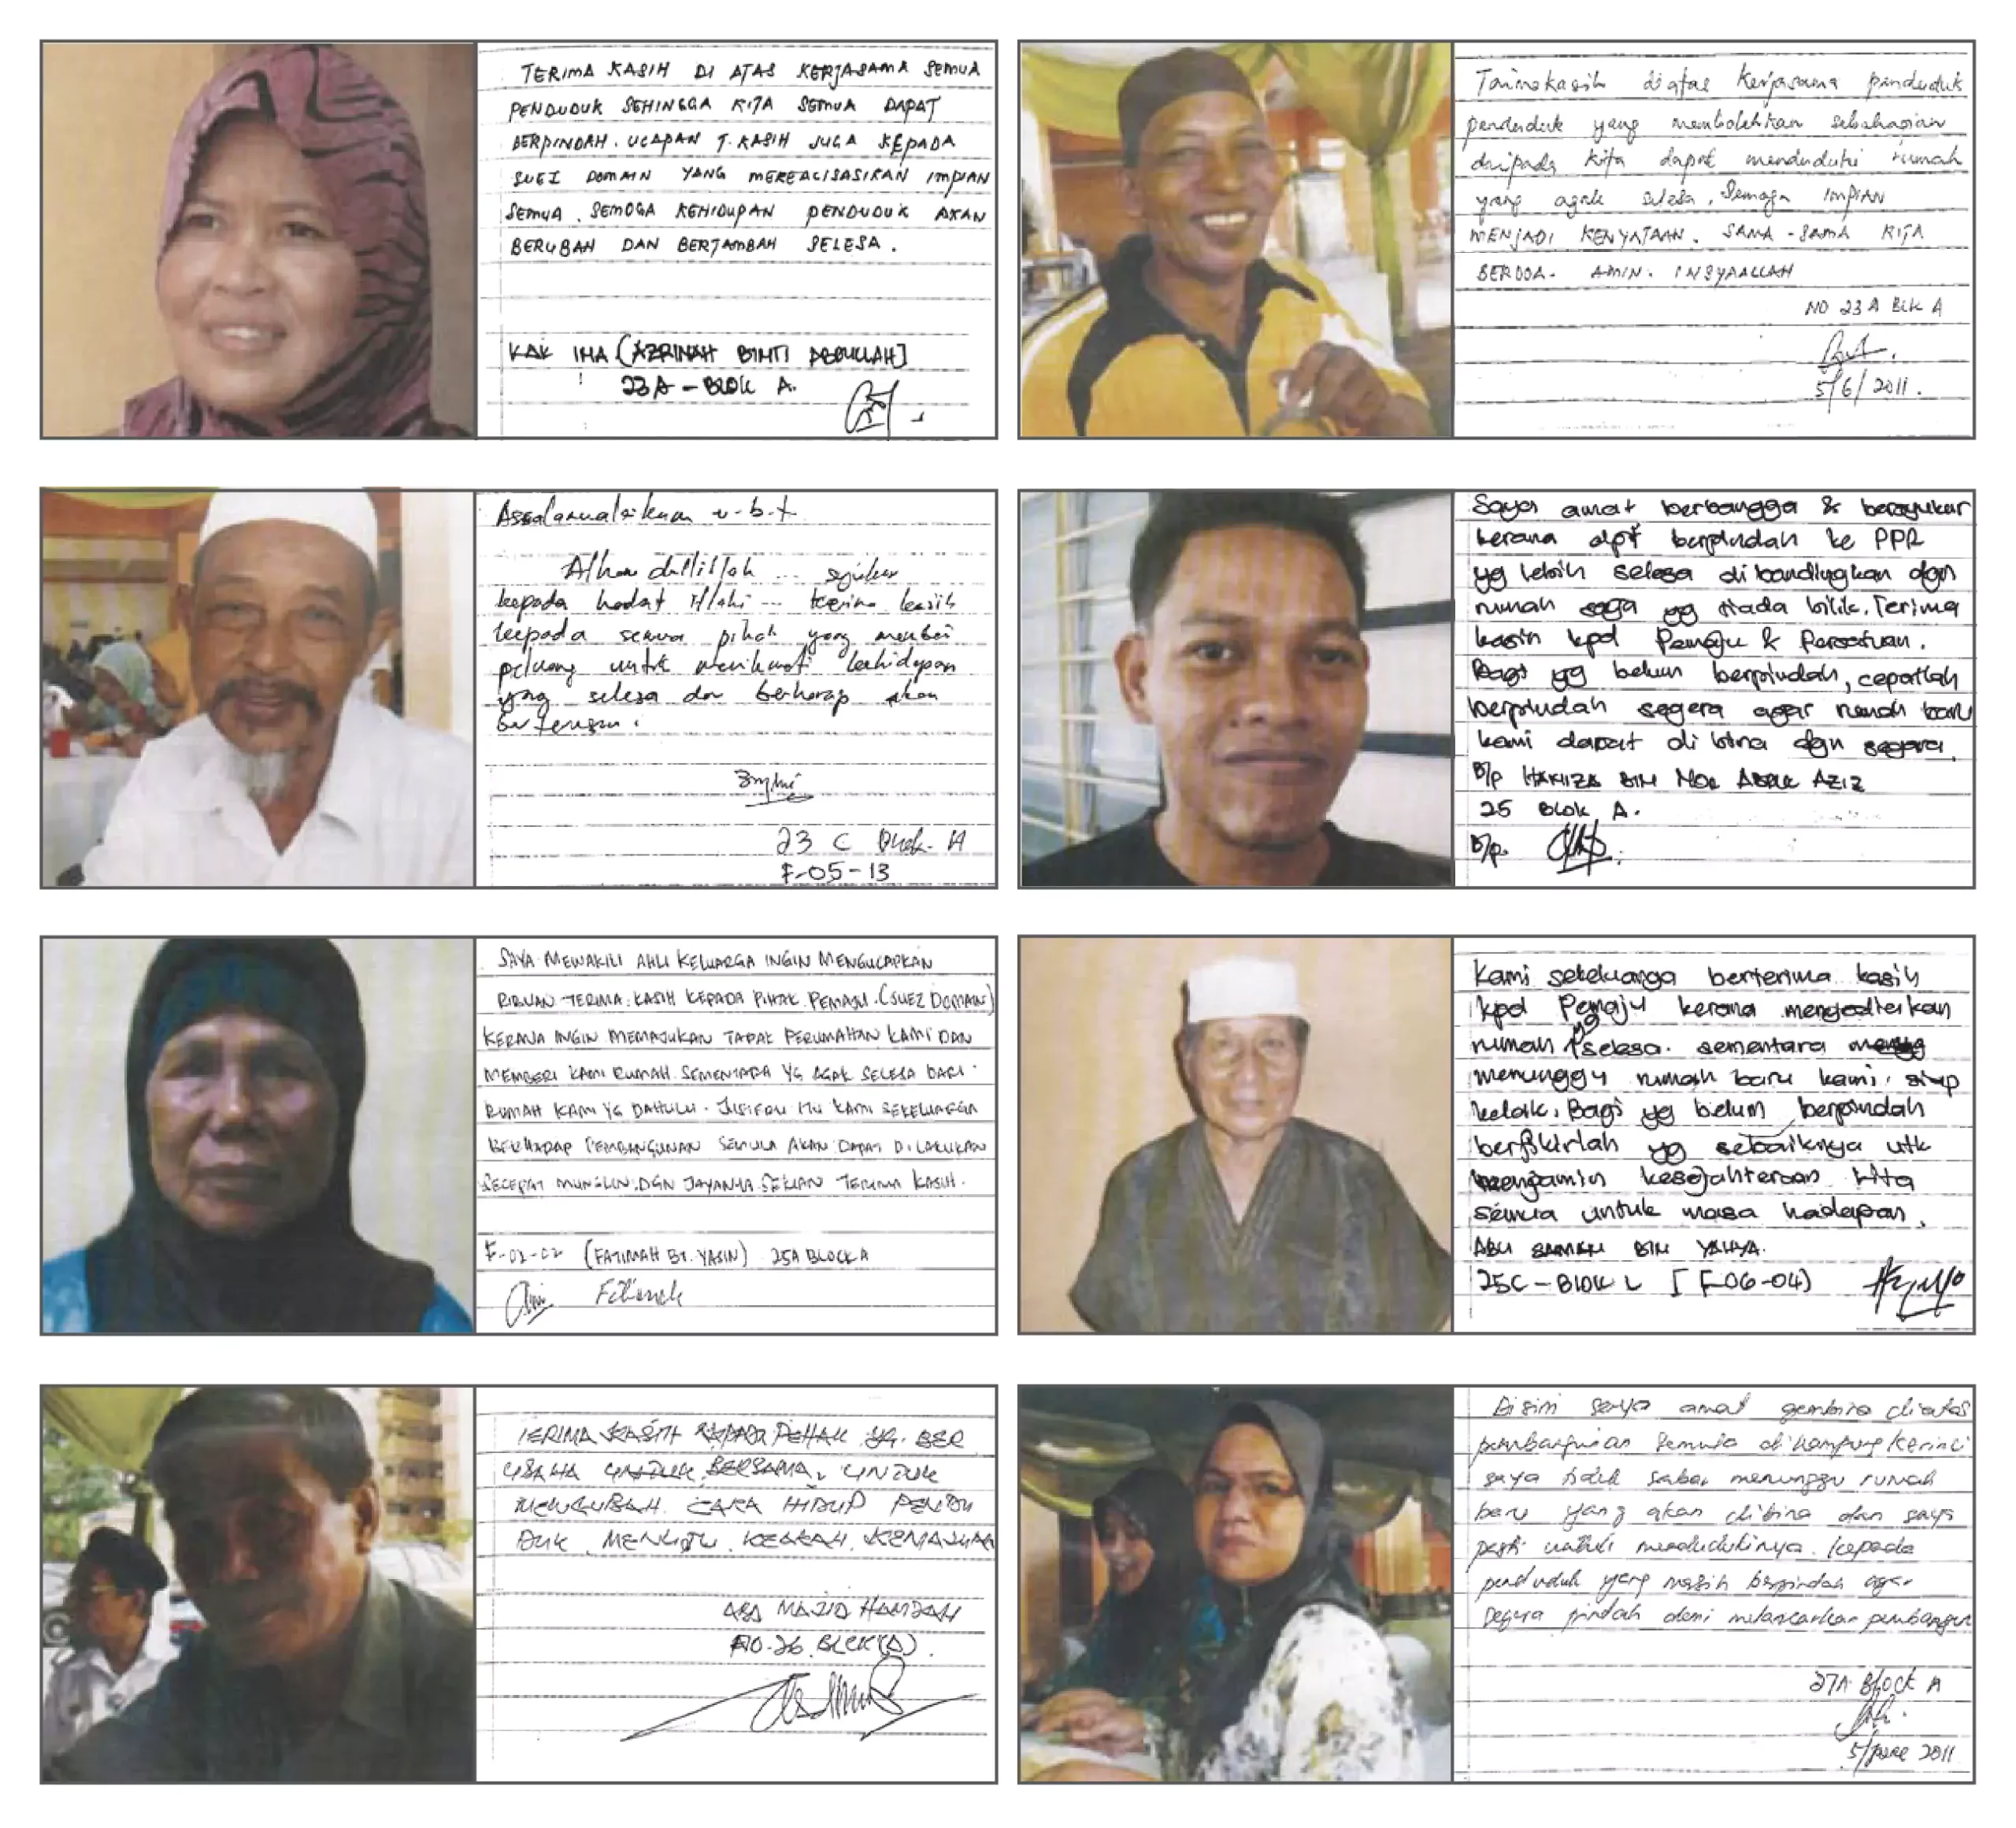 TERIMA KASIH DI ATAS KERJASAMA SEMUA
PENDUDUK SEHINGGA KITA SEMUA DAPAT
BERPINDAH. UCAPAN T. KASIH JUGA KEPADA
SUEZ DOMAIN YANG MEREALISASIKAN IMPIAN
SEMUA. SEMOGA KEHIDUPAN PENDUDUK AKAN
BERUBAH DAN BERTAMBAH SELESA.
KAK INA (AZRINAH BINTI ABDULLAH)
23A - BLOK A.
Terimakasih diatas kerjasama penduduk
penduduk yang membolehkan sebahagian
daripada kita dapat menduduki rumah
yang agak selesa. Semoga IMPIAN
MENJADI KENYATAAN. SAMA-SAMA KITA
BERDOA. AMIN. INSYAALLAH
NO 23 A Blk A
5/6/2011.
Assalamualaikum w.b.t
Alhamdulillah ... syukur
kepada hadrat Illahi ... terima kasih
kepada semua pihak yang memberi
peluang untuk menikmati kehidupan
yang selesa dan berharap akan
berterusan.
23 C Block A
F-05-13
Saya amat berbangga & bersyukur
kerana dpt berpindah ke PPR
yg lebih selesa dibandingkan dgn
rumah saya yg tiada bilik. Terima
kasih kpd Pemaju & Persatuan.
Bagi yg belum berpindah, cepatlah
berpindah segera agar rumah baru
kami dapat di bina dgn segera.
B/p HAKIZA BIN NOR ABDUL AZIZ
25 BLOK A.
B/p.
SAYA MEWAKILI AHLI KELUARGA INGIN MENGUCAPKAN
RIBUAN TERIMA KASIH KEPADA PIHAK PEMAJU (SUEZ DOMAIN)
KERANA INGIN MEMAJUKAN TAPAK PERUMAHAN KAMI DAN
MEMBERI KAMI RUMAH SEMENTARA YG AGAK SELESA DARI
RUMAH KAMI YG DAHULU. JUSTERU ITU KAMI SEKELUARGA
BERHARAP PEMBANGUNAN SEMULA AKAN DAPAT DILAKUKAN
SECEPAT MUNGKIN DGN JAYANYA. SEKIAN TERIMA KASIH.
F-02-02 (FATIMAH BT. YASIN) 25A BLOCK A
Kami sekeluarga berterima kasih
kpd Pemaju kerana mengadierkan
rumah yg selesa sementara
menunggu rumah baru kami siap
kelak. Bagi yg belum berpindah
berfikirlah yg sebaiknya utk
mengamin kesejahteraan kita
semua untuk masa hadapan.
ABU SAMAH BIN YAHYA.
25C - BLOK L [F-06-04)
TERIMA KASIH KEPADA PEHAK YG. BER
USAHA UNTUK BERSAMA, UNTUK
MENGUBAH CARA HIDUP PENDU
DUK MENUJU KEARAH KEMAJUAN
ABD MAJID HAMZAH
NO. 26 BLCK (A).
Disini saya amat gembira diatas
pembangunan semula di kampung kerinci
saya tidak sabar menunggu rumah
baru yang akan dibina dan saya
pasti untuk mendudukinya. kepada
penduduk yang masih berpindah agar
segera pindah demi melancarkan pembangun
27A Block A
5/June 2011